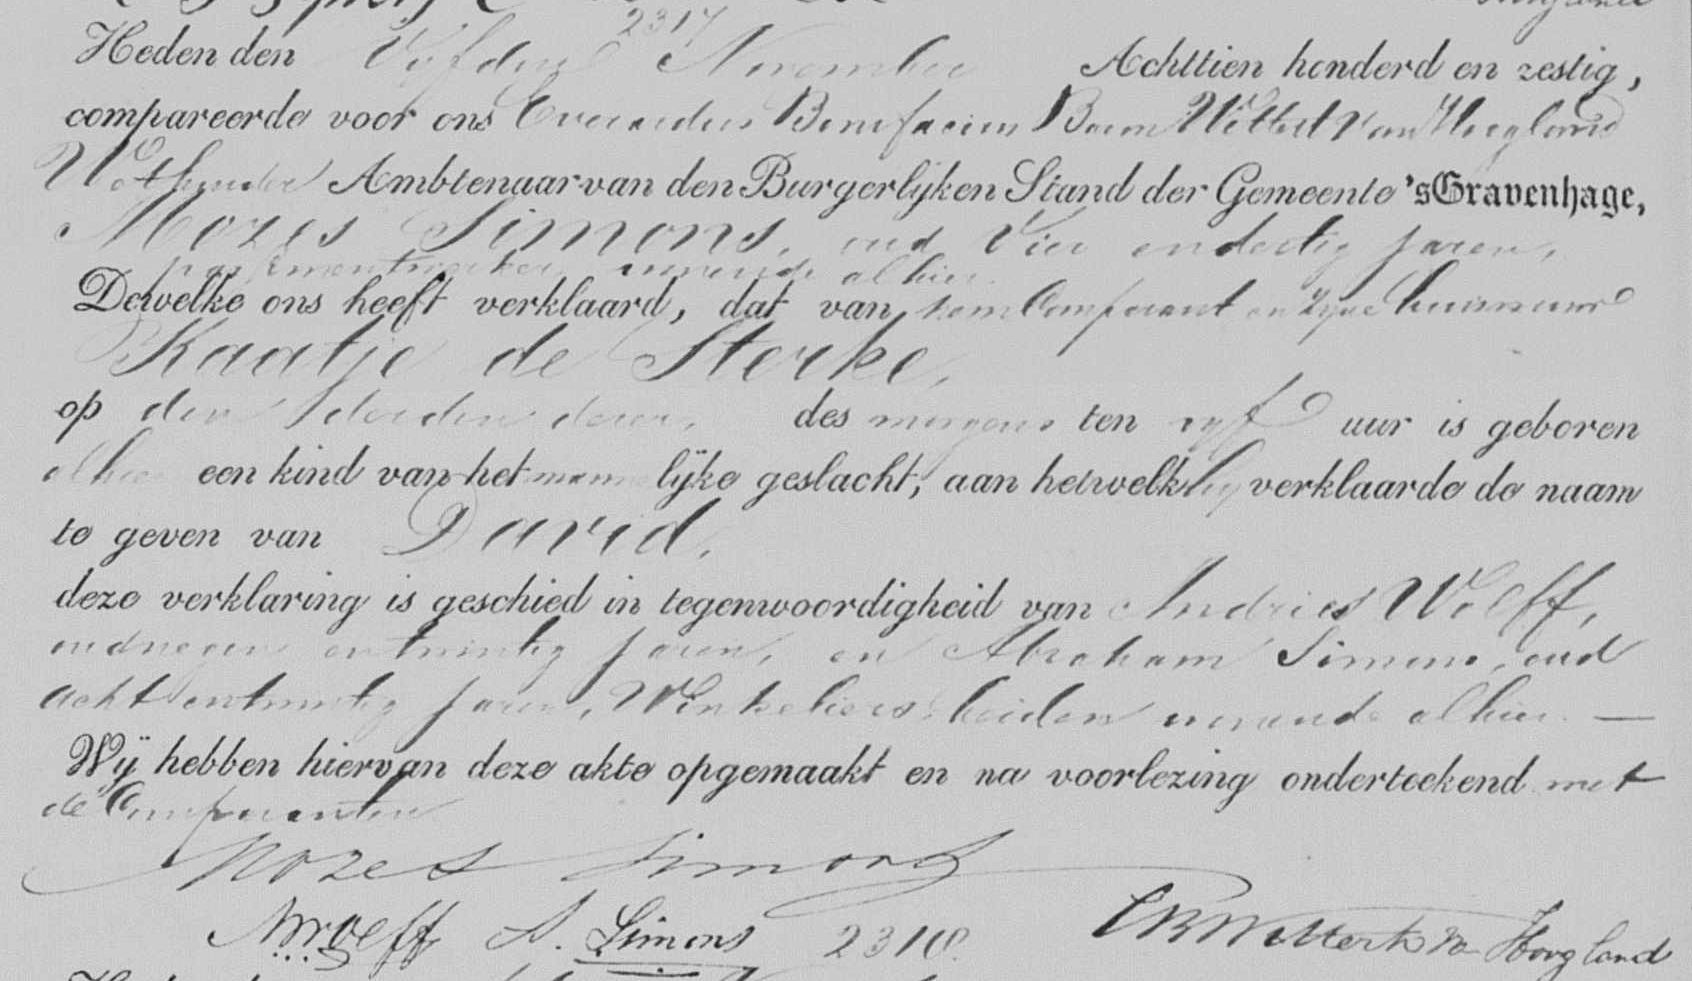 2317
Heden den Vyfden November Achttien honderd en zestig,
compareerde voor ons Everardus Bonifacius Baron Wittert van Hoogland
Wethouder Ambtenaar van den Burgerlijken Stand der Gemeente 'sGravenhage,
Mozes Simons, oud Vier en dertig jaren,
passementwerker, wonende alhier.
Dewelke ons heeft verklaard, dat van hem Comparant en zyne huisvrouw
Kaatje de Sterke,
op den derden dezer, des morgens ten vyf uur is geboren
alhier een kind van het mannelijke geslacht, aan hetwelk hy verklaarde de naam
te geven van David.
deze verklaring is geschied in tegenwoordigheid van Andries Wolff,
oud negen en twintig jaren, en Abraham Simons, oud
acht en twintig jaren, Winkeliers beiden wonende alhier. —
Wij hebben hiervan deze akte opgemaakt en na voorlezing onderteekend met
de Comparanten
Mozes Simons
A Wolff A. Simons 2318. EBWittert v Hoogland